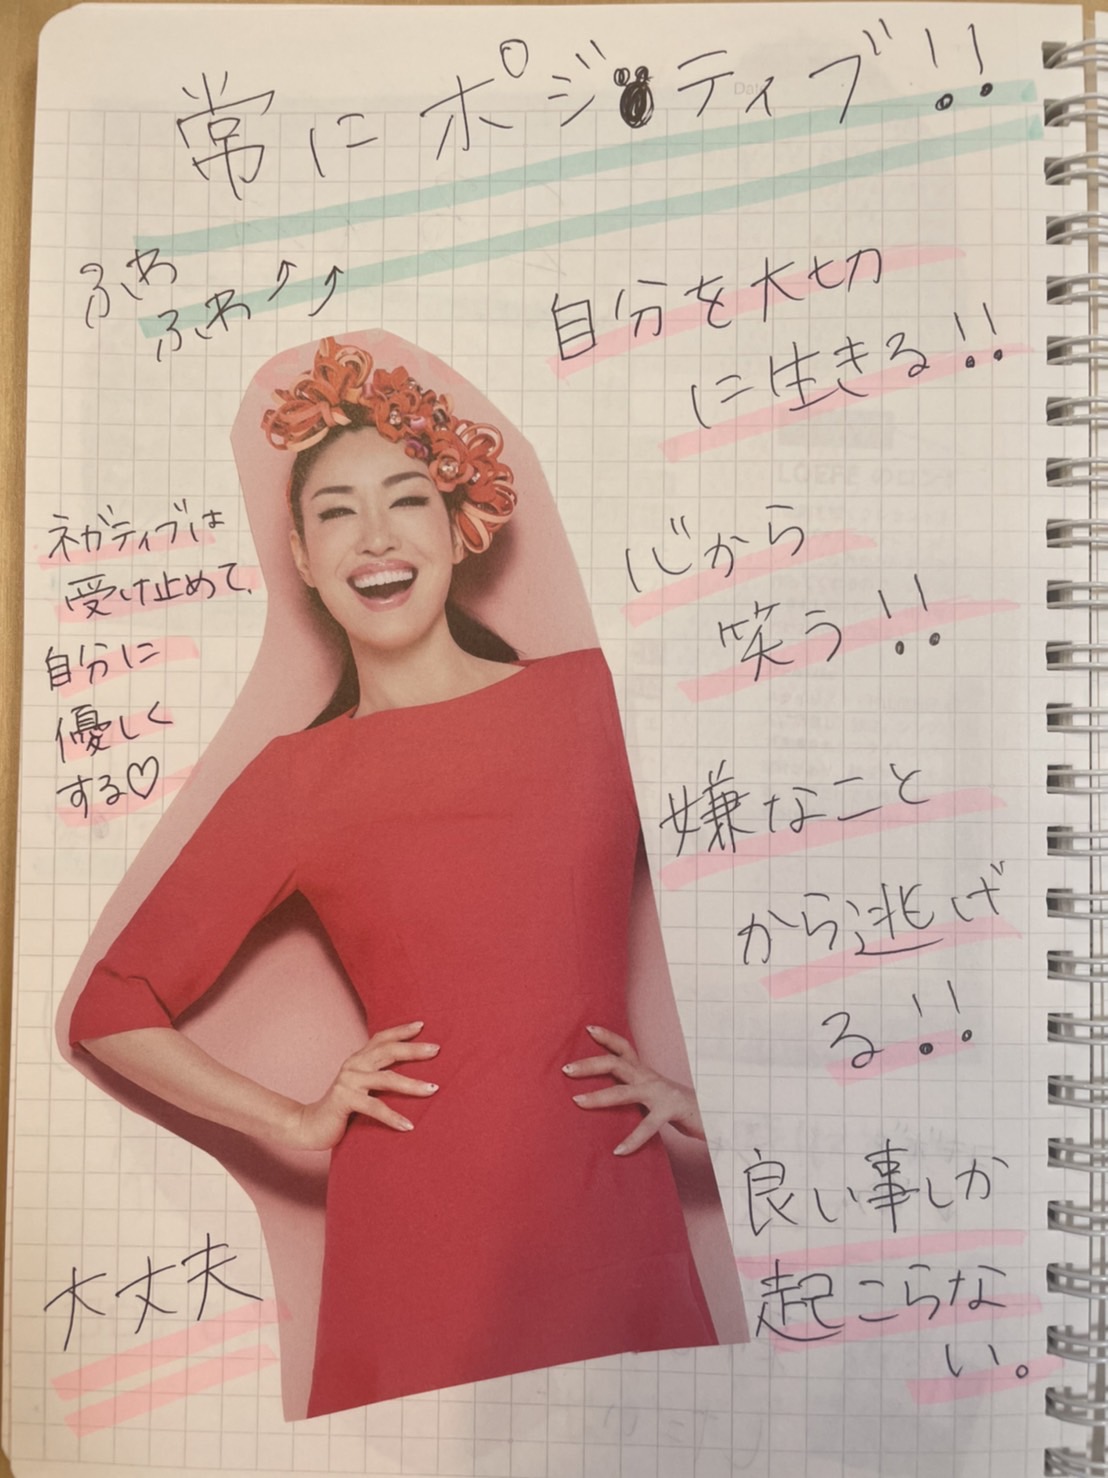 常にポジティブ!!
ふわ
ふわ⤴⤴
自分を大切
に生きる!!
ネガティブは
受け止めて、
自分に
優しく
する♡
心から
笑う!!
嫌なこと
から逃げ
る!!
良い事しか
起こらな
い。
大丈夫